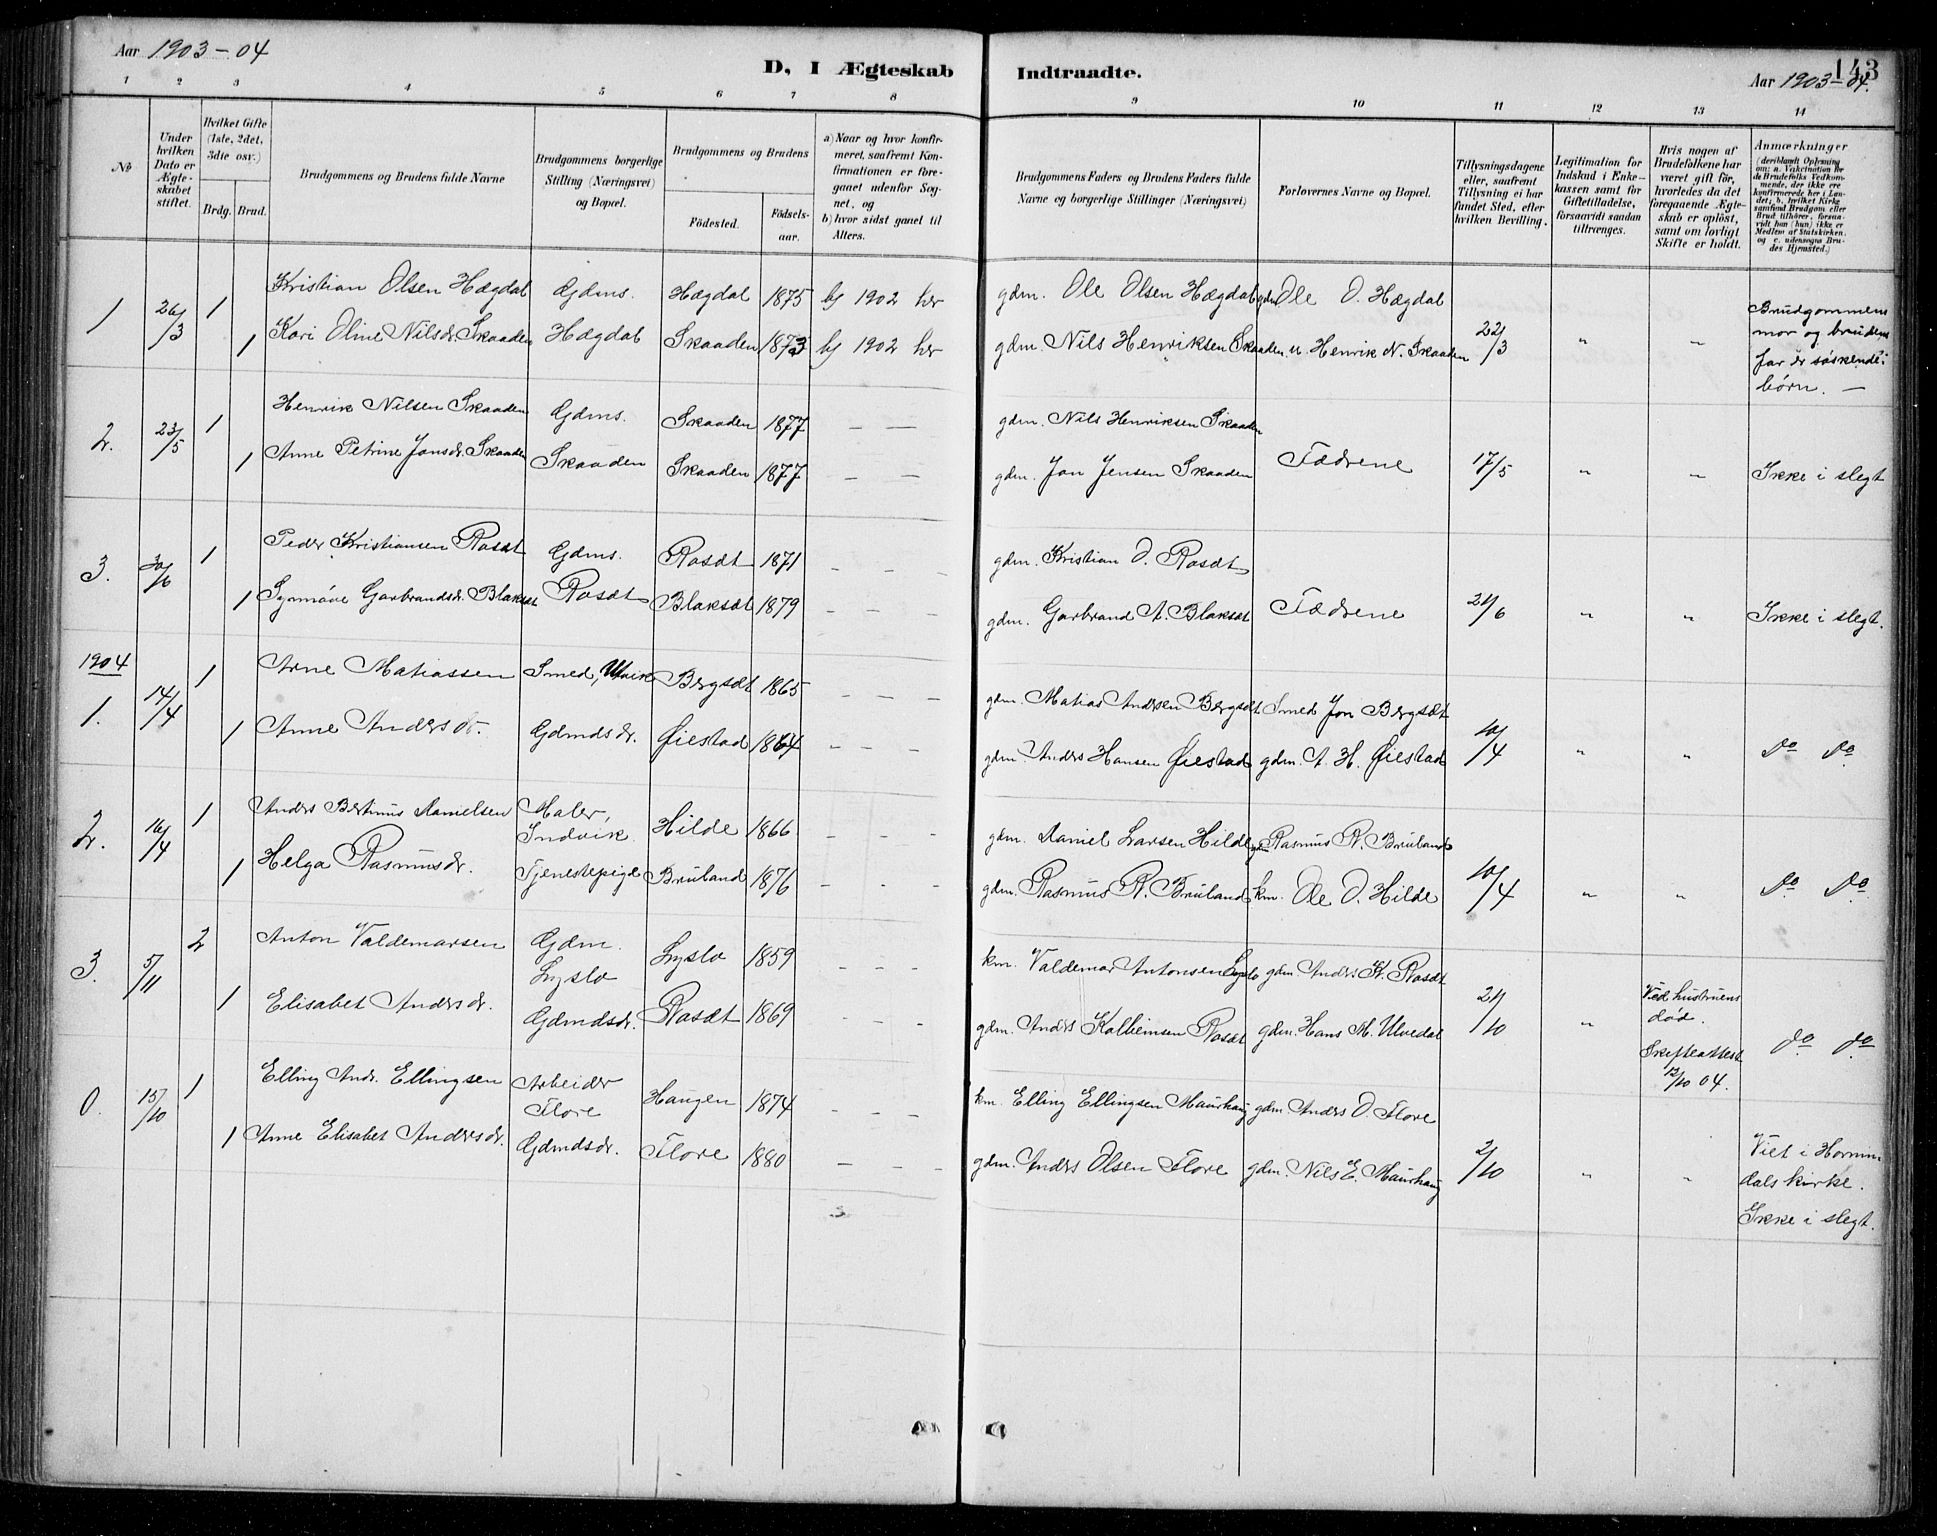 Aar 1903-04
D, I Ægteskab Indtraadte.
143
Aar 1903-04.
1 2 3 4 5 6 7 8 9 10 11 12 13 14
No
Under hvilken Dato er Ægteskabet stiftet.
Hvilket Gifte (1ste, 2det, 3die osv.)
Brdg. Brud.
Brudgommens og Brudens fulde Navne
Brudgommens borgerlige Stilling (Næringsvei) og Bopæl.
Brudgommens og Brudens
Fødested.
Fødselsaar.
a) Naar og hvor konfirmeret, saafremt Konfirmationen er foregaaet udenfor Sognet, og
b) hvor sidst gaaet til Alters.
Brudgommens Faders og Brudens Faders fulde Navne og borgerlige Stillinger (Næringsvei)
Forlovernes Navne og Bopæl.
Tillysningsdagene eller, saafremt Tillysning ei har fundet Sted, efter hvilken Bevilling.
Legitimation for Indskud i Enkekassen samt for Giftetilladelse, forsaavidt saadan tiltrænges.
Hvis nogen af Brudefolkene har været gift før, hvorledes da det foregaaende Ægteskab er opløst, samt om lovligt Skifte er holdt.
Anmærkninger
(deriblandt Oplysning om: a. Vakcination for de Brudefolks Vedkommende, der ikke ere konfirmerede her i Landet; b. hvilket Kirkesamfund Brudgom eller Brud tilhører, forsaavidt han (hun) ikke er Medlem af Statskirken, og c. udensogns Brudes Hjemsted.)
1 26/3 1 Kristian Olsen Hægdal Gdms. Hægdal 1875 b) 1902 her gdm. Ole Olsen Hægdal gdm Ole O. Hægdal
1 Kari Oline Nilsdr. Skaaden Hægdal Skaaden 1873 b) 1902 her gdm. Nils Henriksen Skaaden u. Henrik N. Skaaden 22/3 " " Brudgommens mor og brudens far er søskendebørn. —
2. 23/5 1 Henrik Nilsen Skaaden Gdms. Skaaden 1877 — — gdm. Nils Henriksen Skaaden
1 Anne Petrine Jonsdr. Skaaden Skaaden Skaaden 1877 — — gdm. Jon Jensen Skaaden Fædrene 17/5 " " Ikke i slegt
3. 30/6 1 Peder Kristiansen Rosæt Gdms. Rosæt 1871 — — — gdm. Kristian O. Rosæt
1 Synnøve Garbrandsdr. Blaksæt Rosæt Blaksæt 1879 — — — gdm. Garbrand A. Blaksæt Fædrene 21/6 " " Ikke i slegt.
1904
1. 14/4 1 Arne Matiassen Smed, Utvik Bergsæt 1865 — — — gdm. Matias Andersen Bergsæt Smed Jon Bergsæt
1 Anne Andersdr. Gdmdsdr. Øiestad 1864 — — — gdm. Anders Hansen Øiestad gdm. A. H. Øiestad 10/4 " " do do
2. 16/4 1 Anders Bertinus Danielsen Maler, Indvik Hilde 1866 — — — gdm. Daniel Larsen Hilde gdm Rasmus R. Bruland
1 Helga Rasmusdr. Tjenestepige Bruland 1876 — — — gdm. Rasmus R. Bruland km. Ole O. Hilde 10/4 " " do do
3. 5/11 2 Anton Valdemarsen Gdm. Lyslo Lyslo 1859 — — — km. Valdemar Antonsen Lyslo gdm. Anders K. Rosæt
1 Elisabet Andersdr. Gdmdsdr. Rosæt 1869 — — — gdm. Anders Kolbeinsen Rosæt gdm. Hans M. Ulvedal 21/10 " Ved hustruens død. Skifteattest 12/10 04. do do
0. 15/10 1 Elling Andr. Ellingsen Arbeider Flore Haugen 1874 — — — km. Elling Ellingsen Maurhaug gdm. Anders O. Flore
1 Anne Elisabet Andersdr. Gdmdsdr. Flore 1880 — — — gdm. Anders Olsen Flore gdm. Nils E. Maurhaug 2/10 " " Viet i Hornindals kirke. Ikke i slegt.